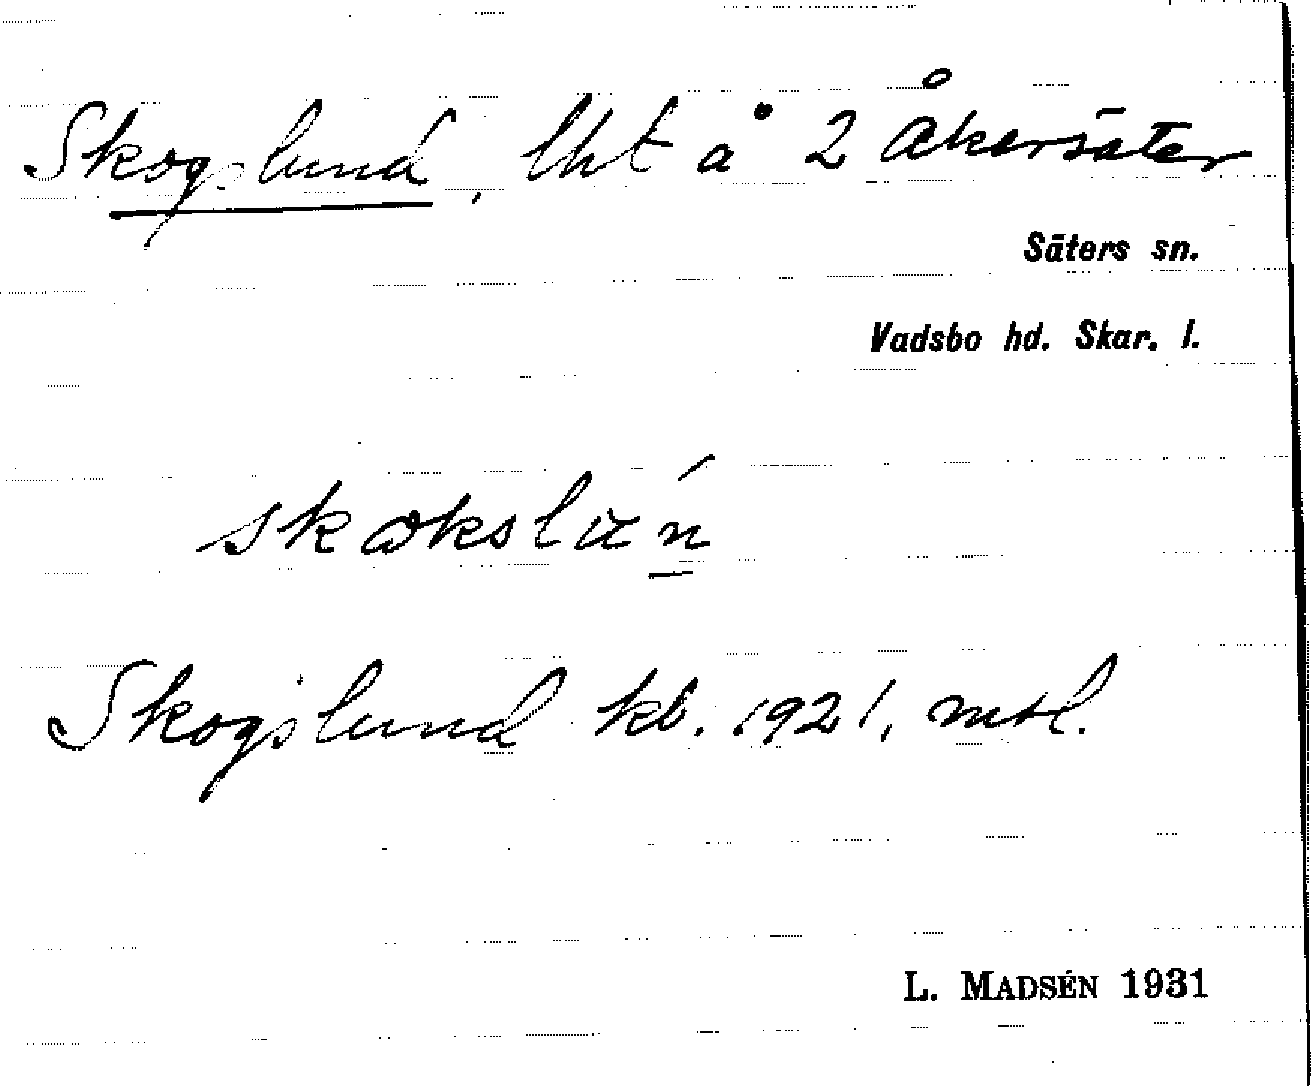 Skogslund, lht å 2 Åkersäter
Säters sn.
Vadsbo hd. Skar. l.
Skogslund kb. 1921, mtl.
L. MADSÉN 1931